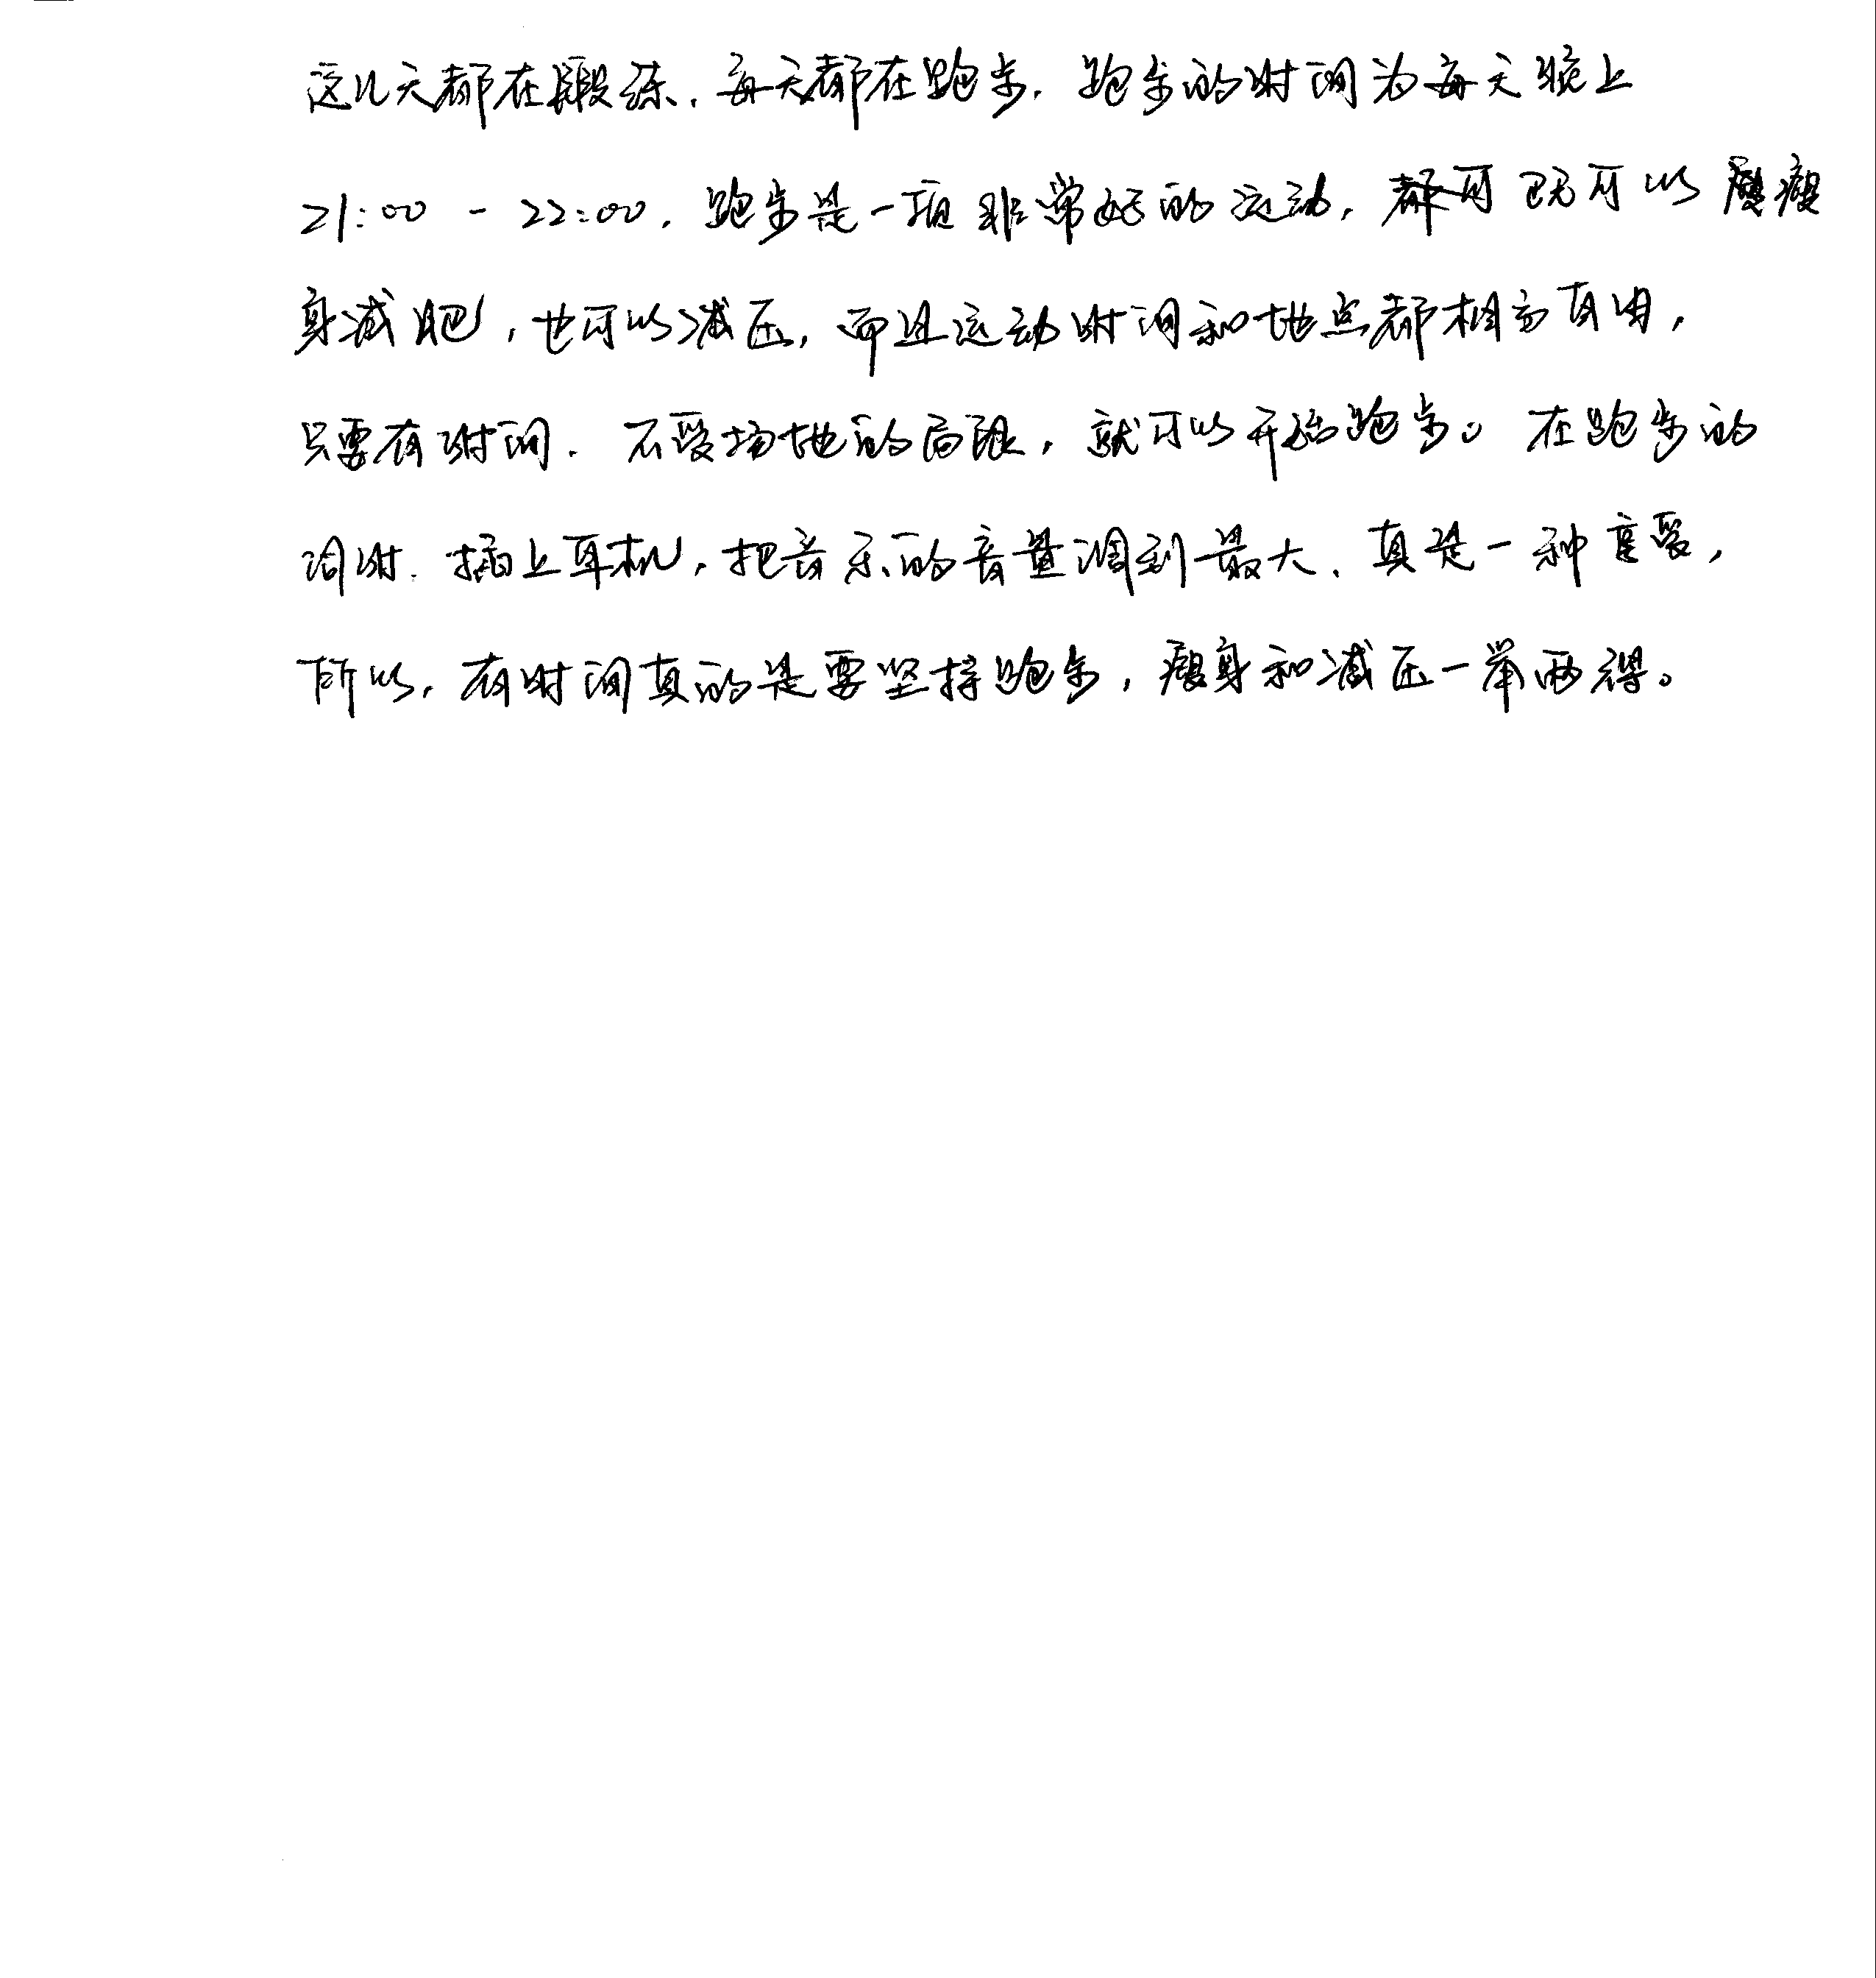 这几天都在锻练,每天都在跑步,跑步的时间为每天晚上
21:00-22:00,跑步是一项非常好的运动,都可既可以瘦
身减肥,也可以减压,而且运动时间和地点都相方自由,
只要有时间,不受场地的局限,就可以开始跑步。在跑步的
同时,插上耳机,把音乐的音量调到最大,真是一种享受,
所以,有时间真的是要坚持跑步,瘦身和减压一举两得。